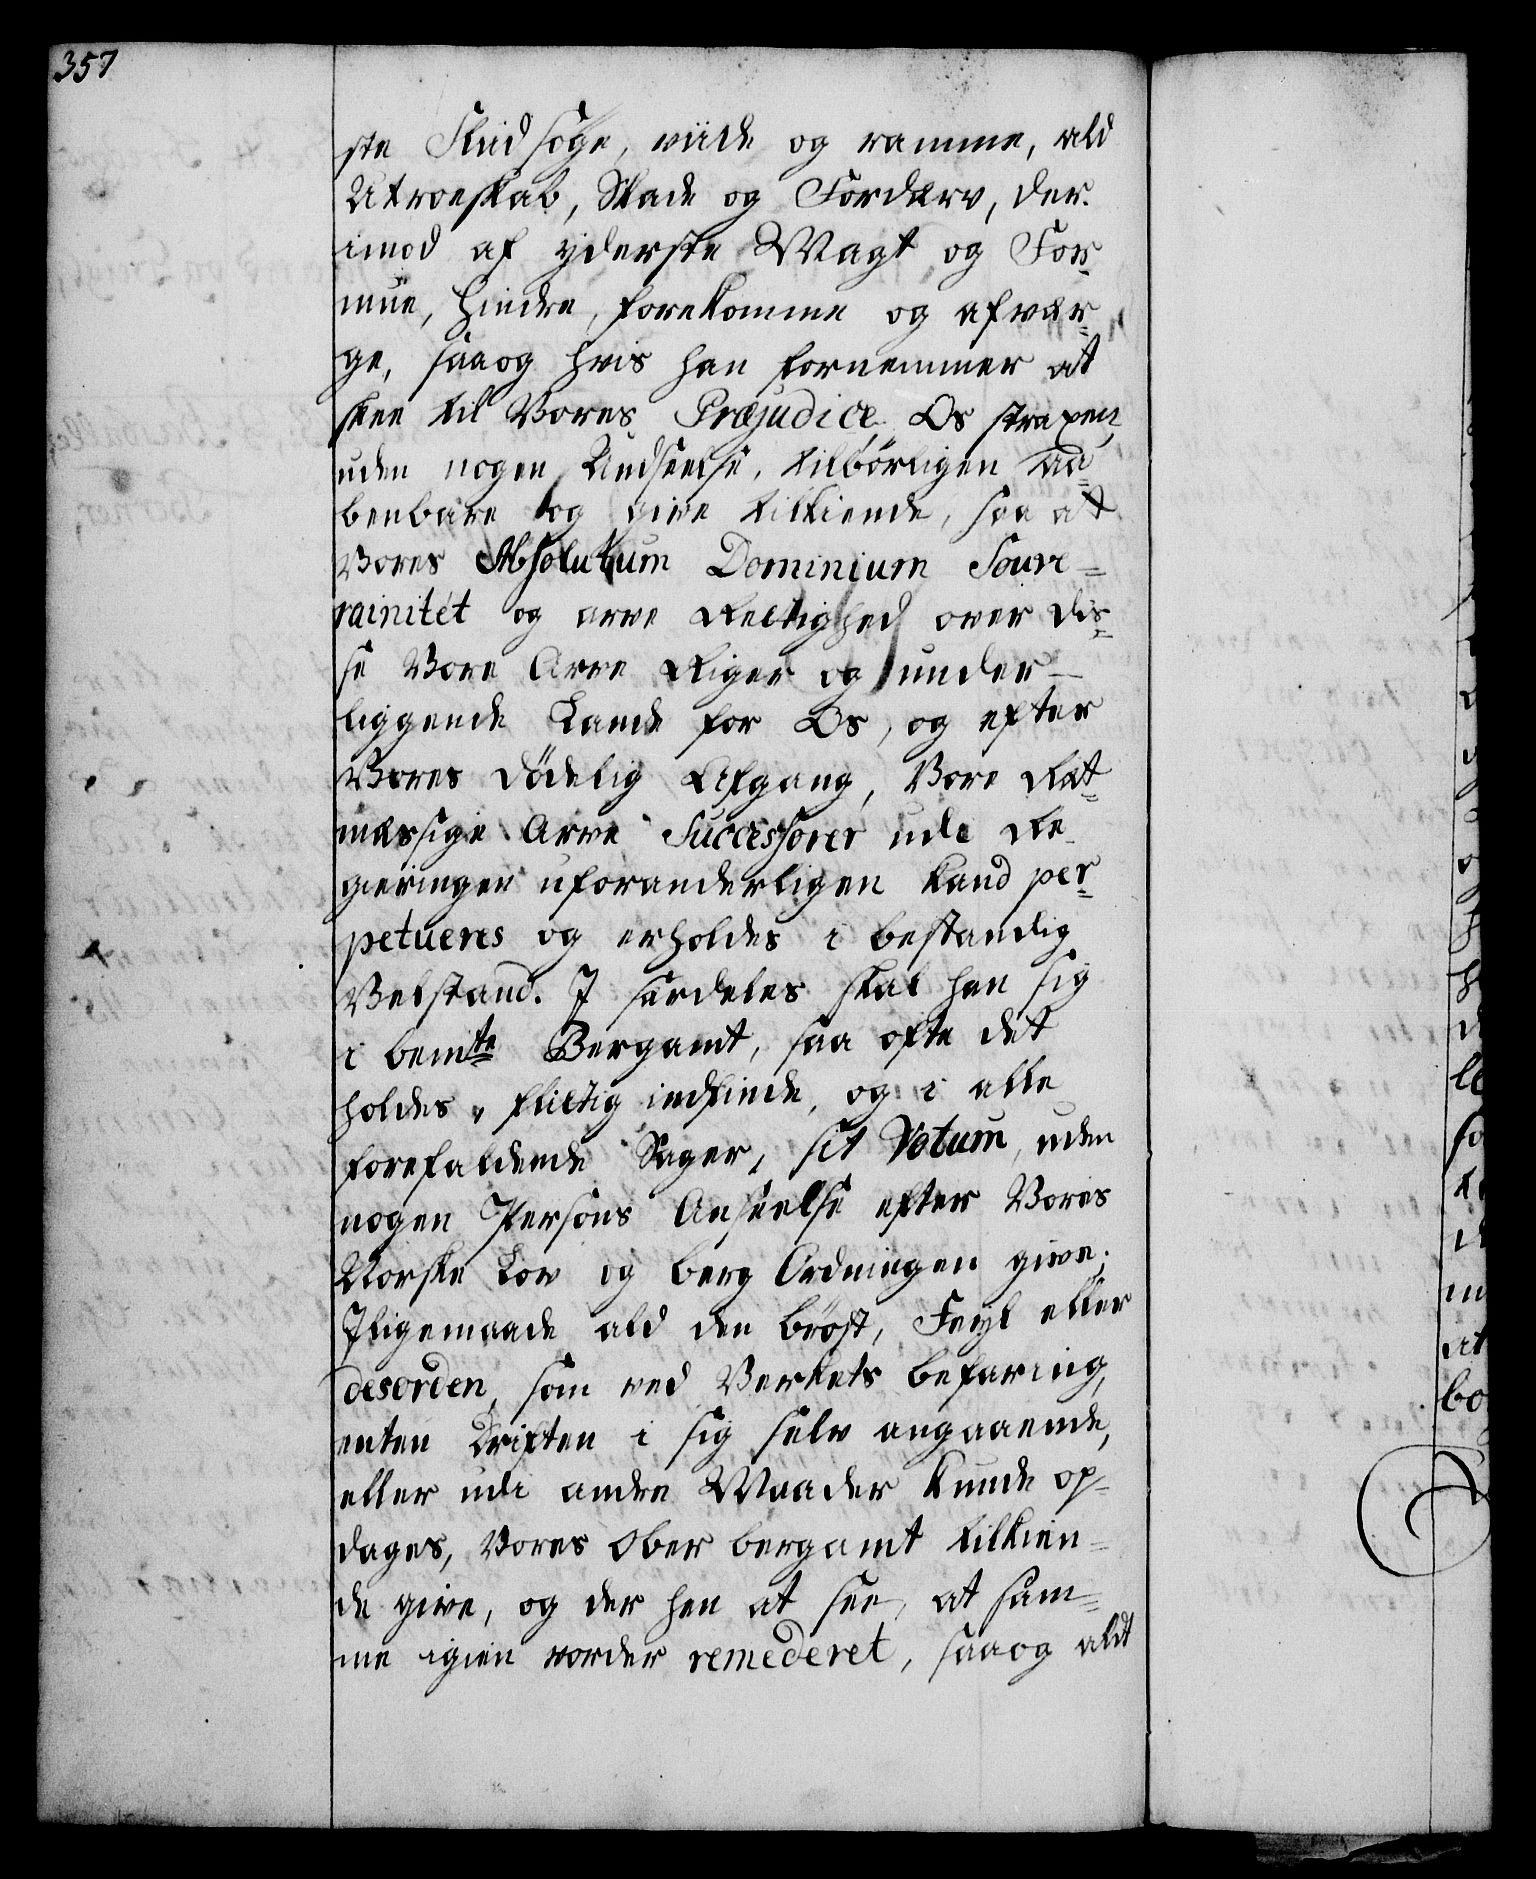 357
ste Fliid søge, viide og ramme, ald
Utroeskab, Skade og Fordærv, der¬
imod af yderste Magt og For¬
mue, hindre, forekomme og afvær¬
ge, saa og hvis han fornemmer at
skee til Vores Præjudice Os straxen,
uden nogen Undseelse, tilbørligen aa¬
benbare og give tilkiende, saa at
Vores Absolutum Dominium Souve=
rainitét og arve Rettighed over dis¬
se Vore Arve Riger og under¬
liggende Lande for Os, og efter
Vores dødelig Afgang, Vore Ret¬
mæssige Arve Successorer udi Re¬
gieringen uforanderligen kand per¬
petueres og erholdes i bestandig
Velstand. I særdeles skal han sig
i bemte Bergamt, saa ofte det
holdes, flittig indfinde, og i alle
forefaldende Sager, sit Votum, uden
nogen Persons Anseelse efter Vores
Norske Lov og berg Ordningen give;
Iligemaade ald den brøst, Feyl eller
desorden, som ved Verkets befaring,
enten Driften i sig selv angaaende,
eller udi andre Maader kunde op¬
dages, Vores Ober bergamt tilkien=
de give, og der hen at see, at sam=
me igien vorder remederet, saa og aldt